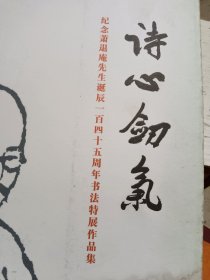 诗心剑气
纪念萧退庵先生诞辰一百四十五周年书法特展作品集